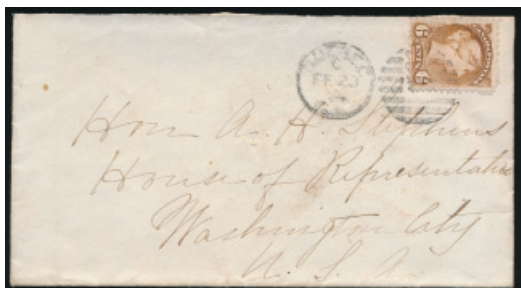 C
FE 23
6 6
Hon A. H. Stephens
House of Representatives
Washington City
U. S. A.